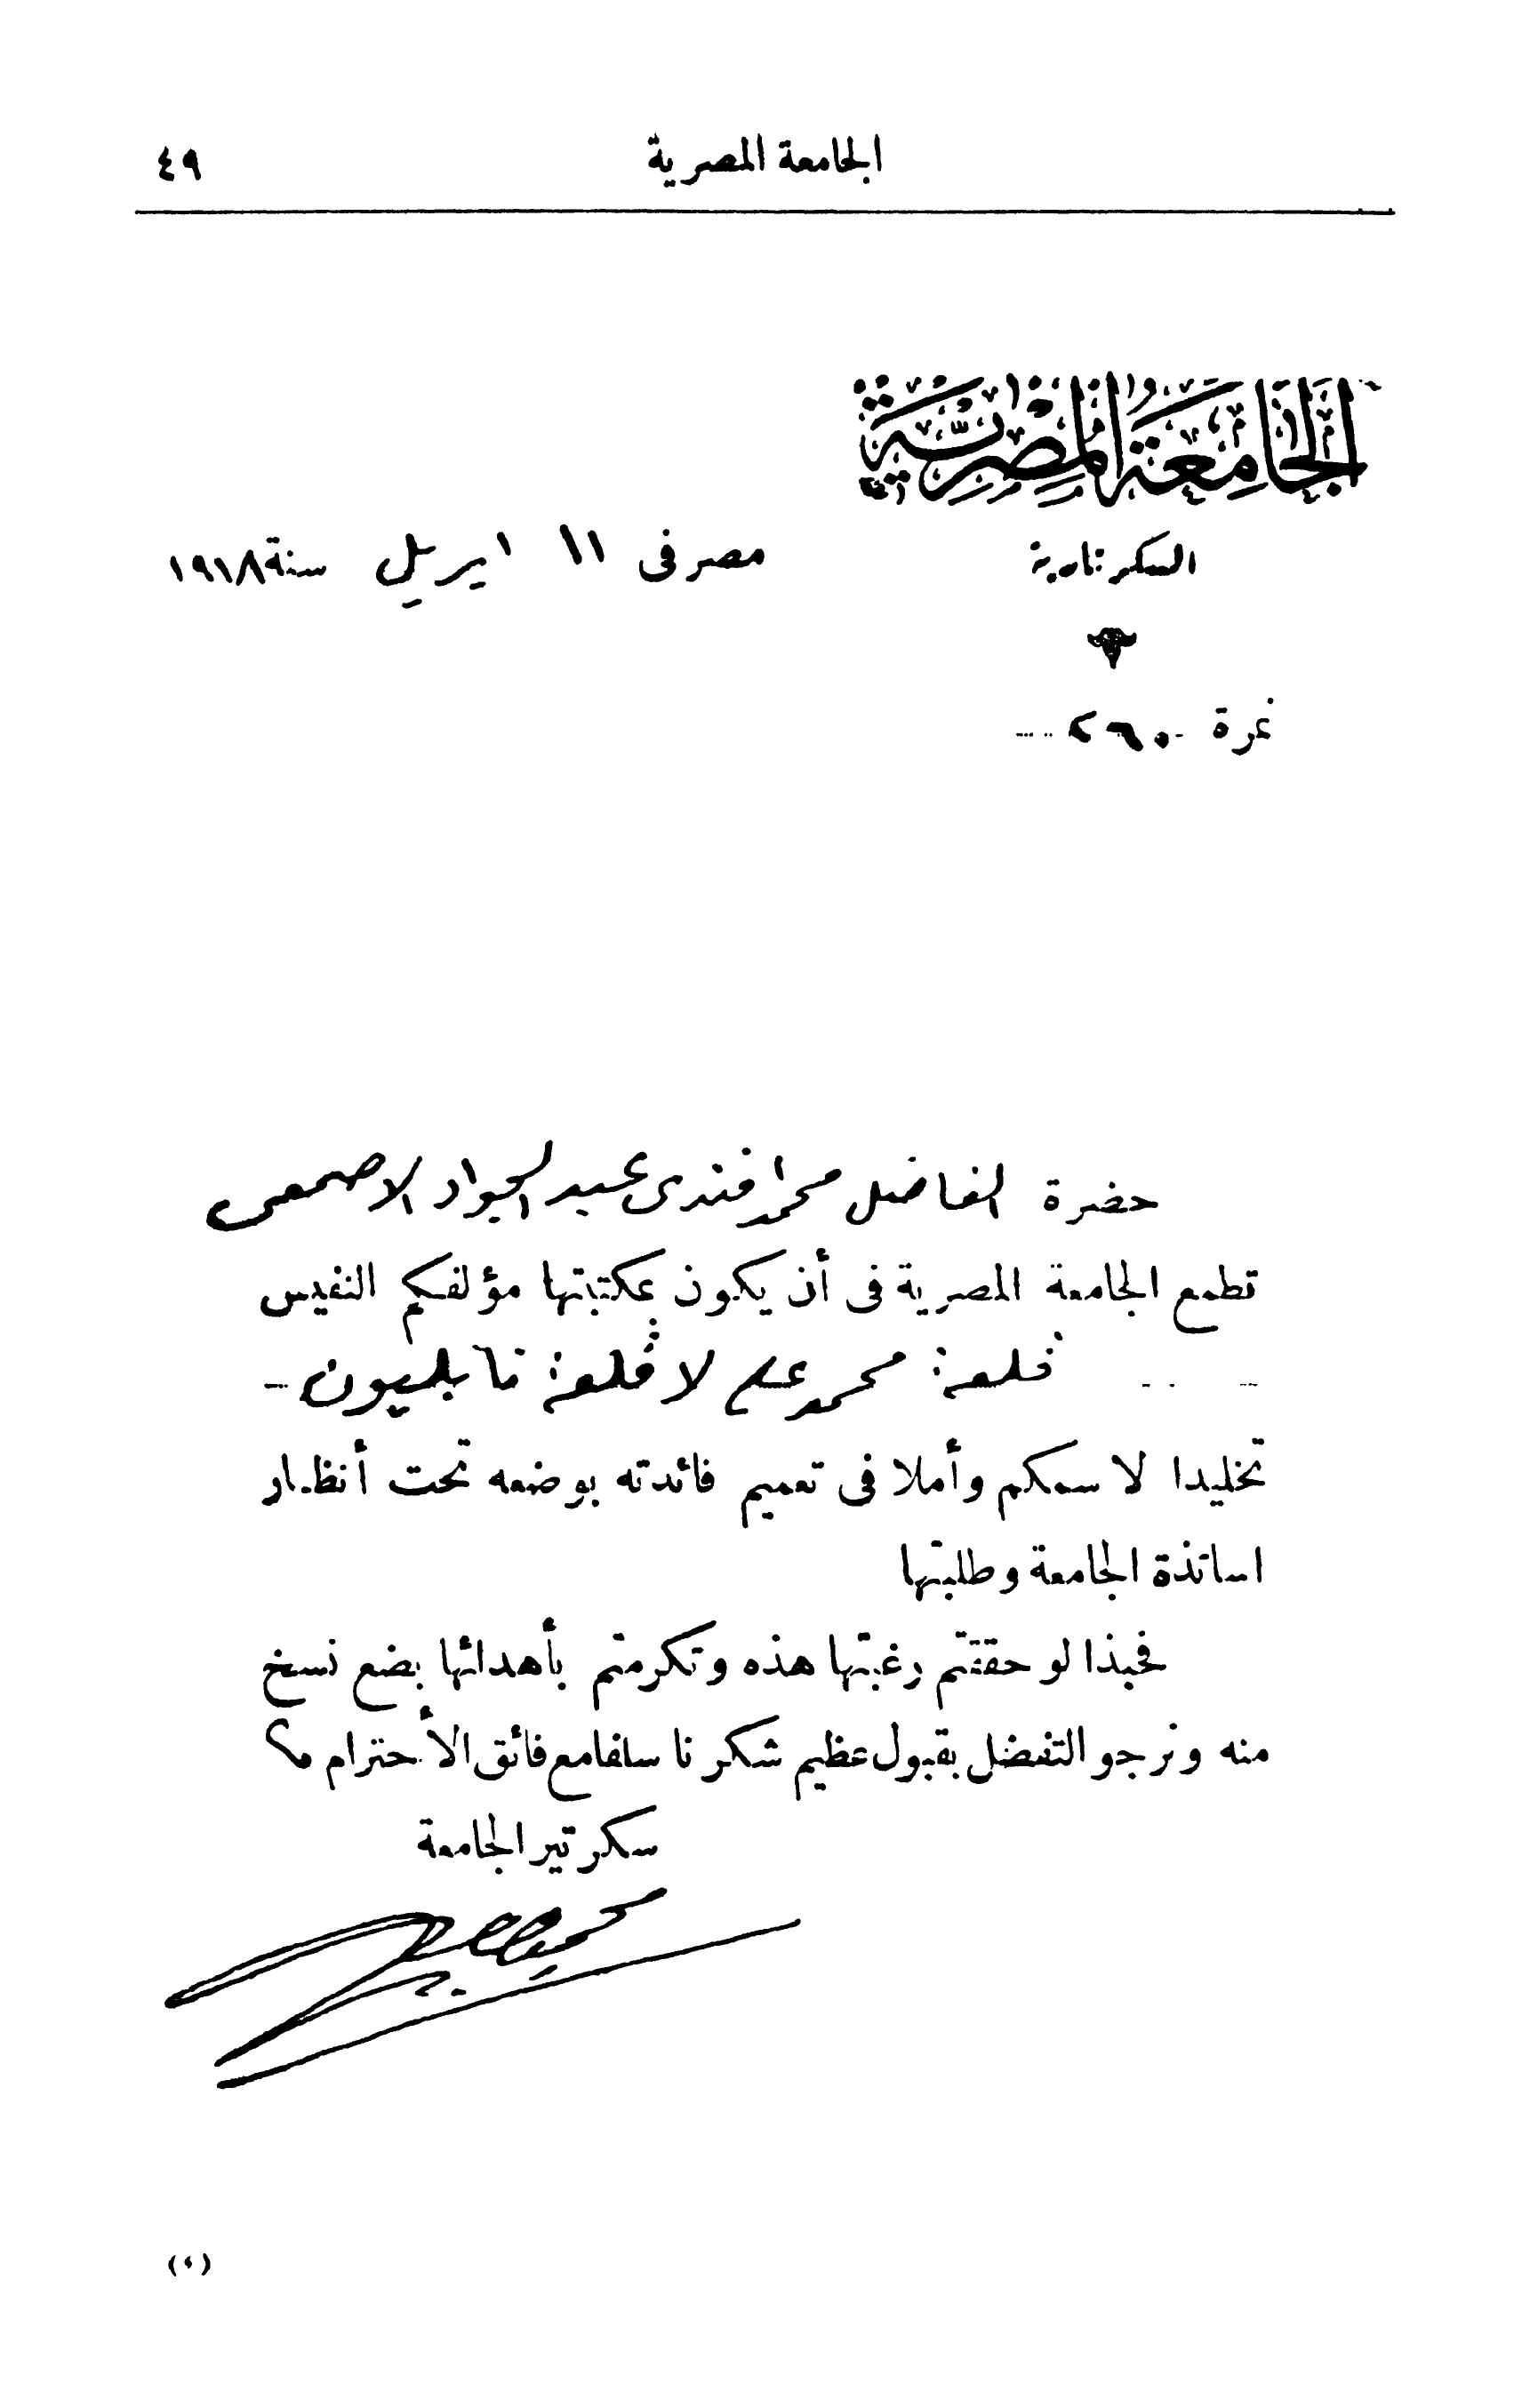 الجامعة المصرية ٤٩
الجَامِعَة المِصْرِيَّة
السكرتارية مصر فى ١١ ابريل سنة ١٩١٨
نمرة ٢٦٠
حضرة الفاضل محمد افندى عبد الجواد الاصمعى
تطمع الجامعة المصرية فى أن يكون بمكتبتها مؤلفكم النفيس
قلعة محمد على لا قلعة نابليون
تخليدا لاسمكم وأملا فى تعميم فائدته بوضعه تحت أنظار
اساتذة الجامعة وطلبتها
فحبذا لو حققتم رغبتها هذه وتكرمتم بأهدائها بضع نسخ
منه ونرجو التفضل بقبول عظيم شكرنا سلفا مع فائق الأحترام
سكرتير الجامعة